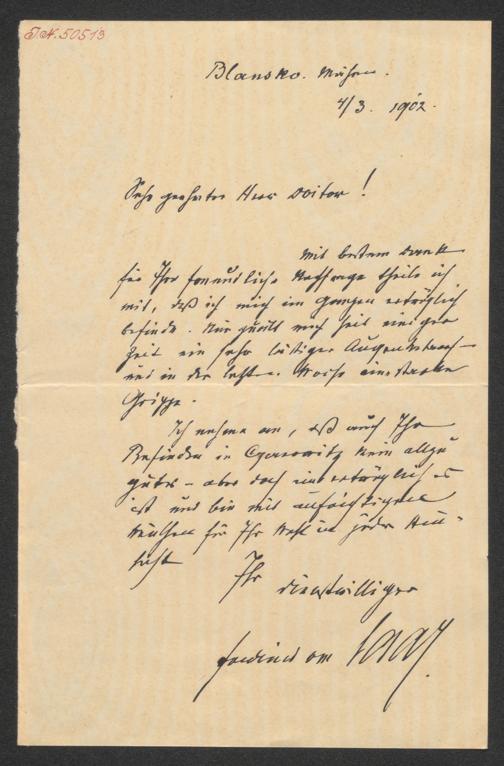 I.N. 50513
Blansko. Mähren.
4/3. 1902.
Sehr geehrter Herr Doctor!
Mit bestem Dank
für Ihre freundliche Nachfrage theile ich
mit, daß ich mich im Ganzen erträglich
befinde. Nur quält mich seit einiger
Zeit ein sehr lästiger Augenkatarrh –
und in der letzten Woche eine starke
Grippe.
Ich nehme an, daß auch Ihr
Befinden in Czernowitz kein allzu
gutes – aber doch ein erträgliches
ist und bin mit aufrichtigen
Wünschen für Ihr Wohl in jeder Hin-
sicht
Ihr
dienstwilliger
Ferdinand von Saar.